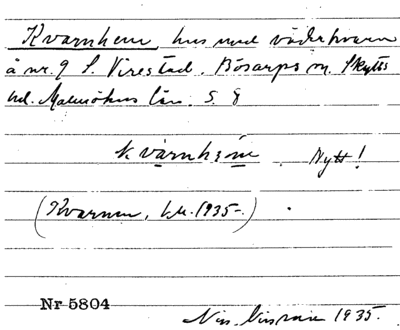 Kvarnhem, hus med väderkvarn
å nr. 9 S. Virestad. Bösarps sn. Skytts
hd. Malmöhus län. S. 8
kvarnhem. Nytt!
(Kvarnen, 1935-.)
Nr 5804
1935.